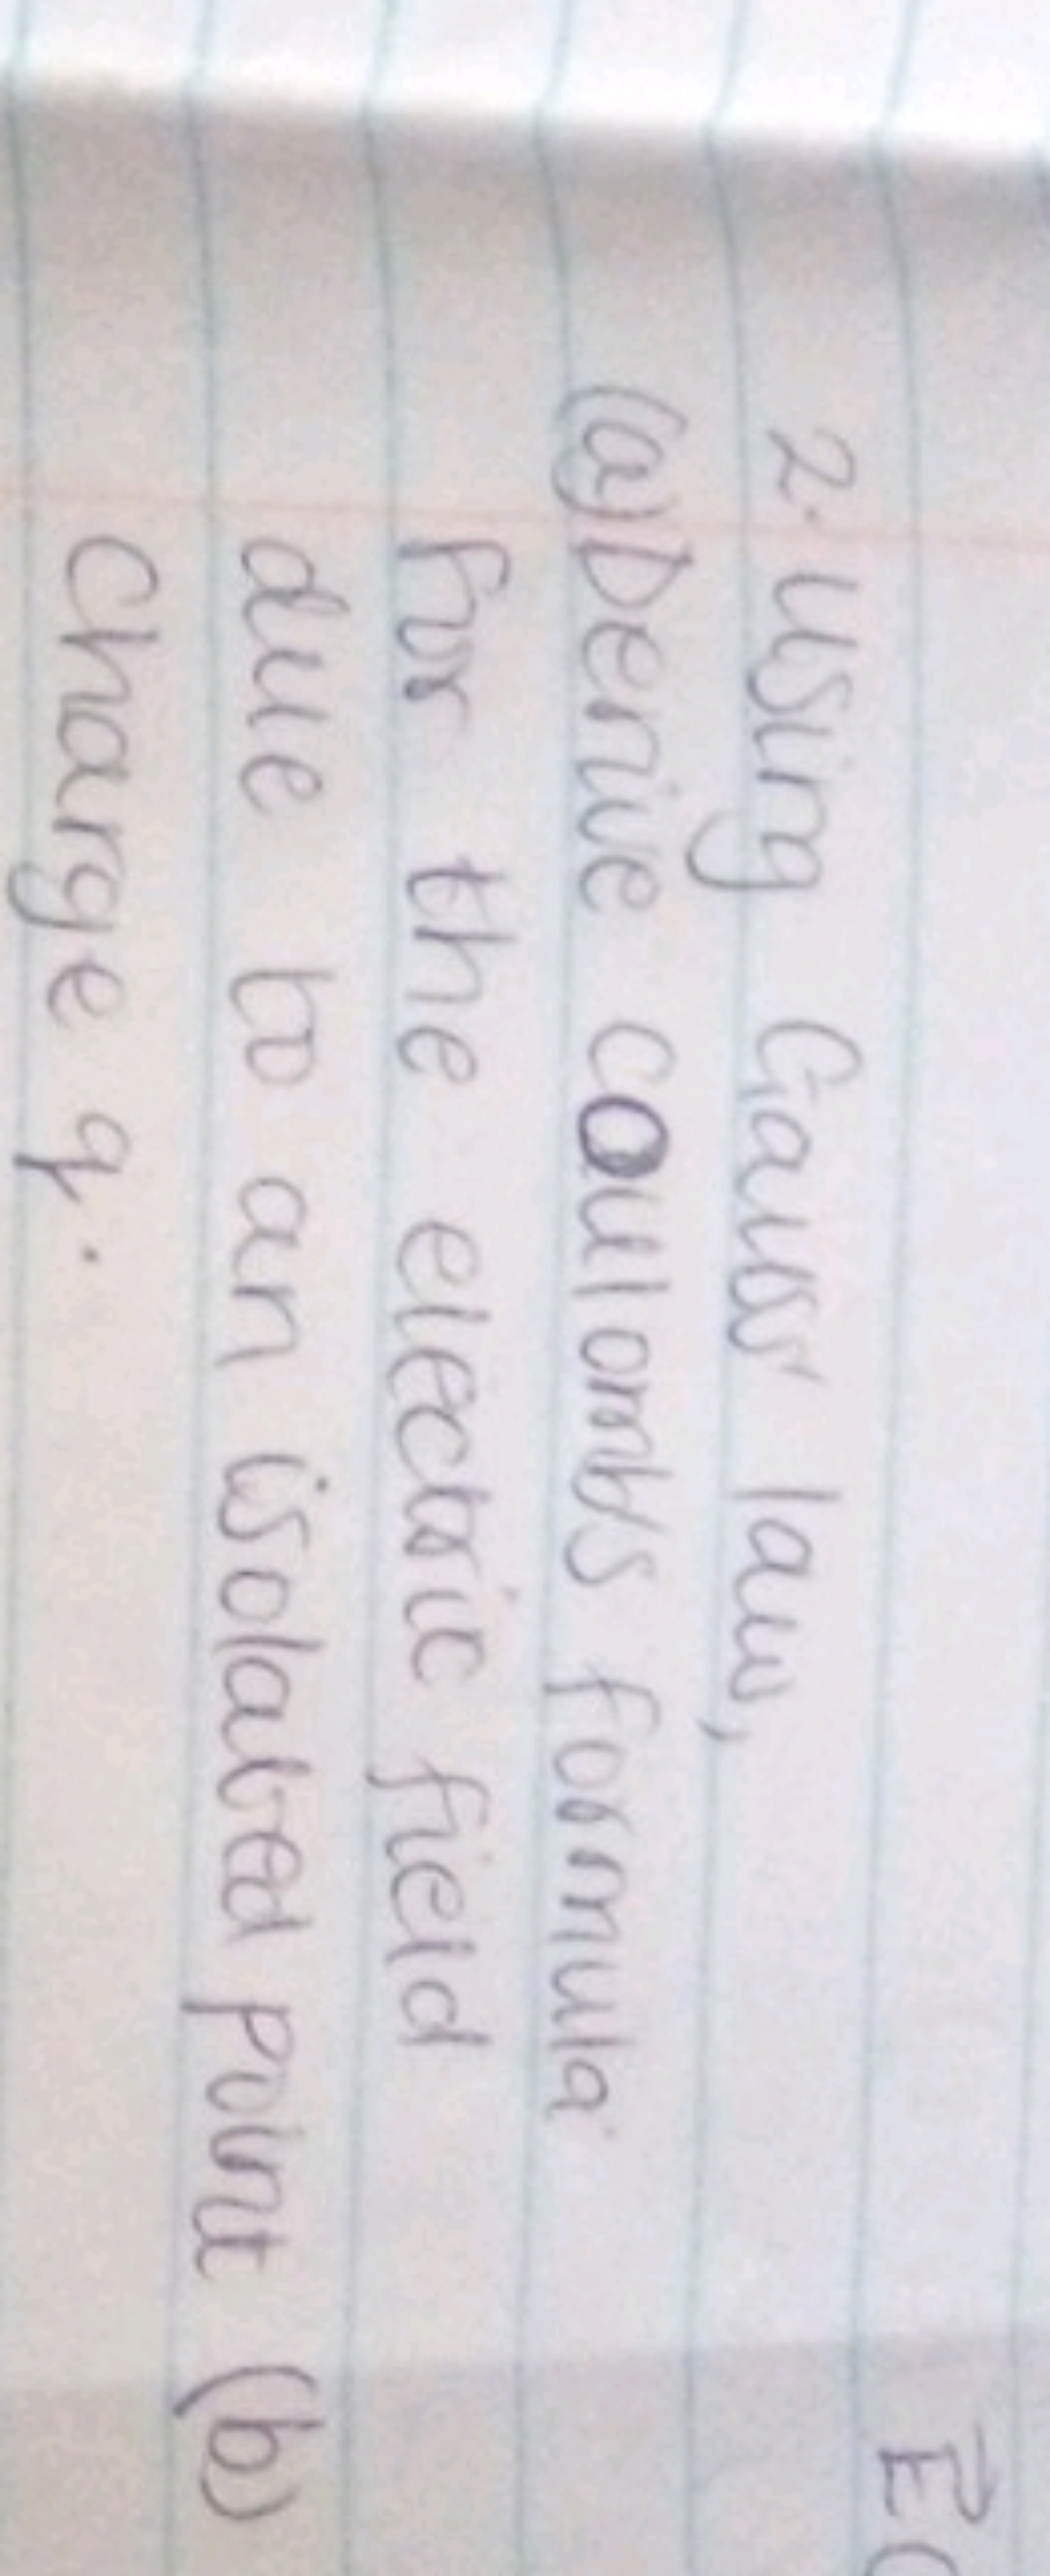 2. Using Gauss' law,
(a) Derive coulomb's formula
for the electric field
due to an isolated point (b)
charge q.
E(